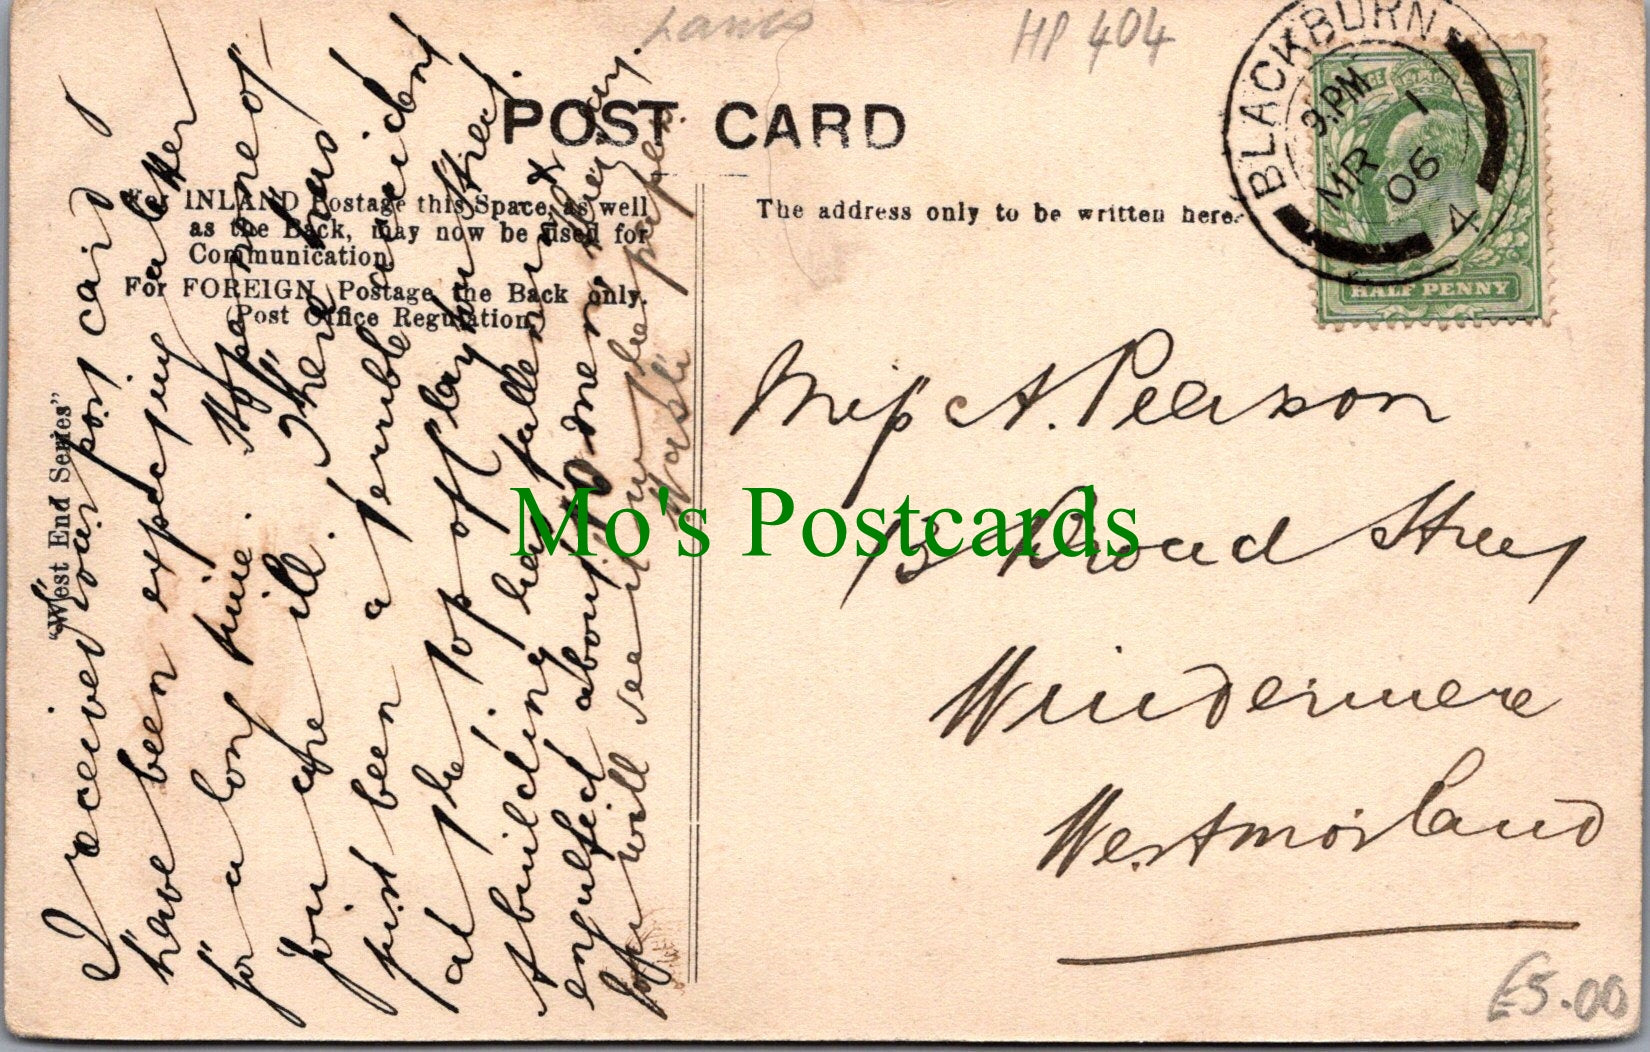 Lancs
HP 404
BLACKBURN
3.PM
1
MR
06
A
HALF PENNY
POST CARD
For INLAND Postage this Space, as well
as the Back, may now be used for
Communication.
For FOREIGN Postage the Back only.
(Post Office Regulation.)
The address only to be written here.
"West End Series"
I received your post card I
have been expecting a letter
for a long time. Hope none of
you are ill. There has
just been a terrible accident
at the top of Clayton Street
A building has fallen in &
engulfed about 10 men they say.
You will see it in the papers.
Miss A. Pearson
13 Broad Street
Windermere
Westmorland
£5.00
Mo's Postcards